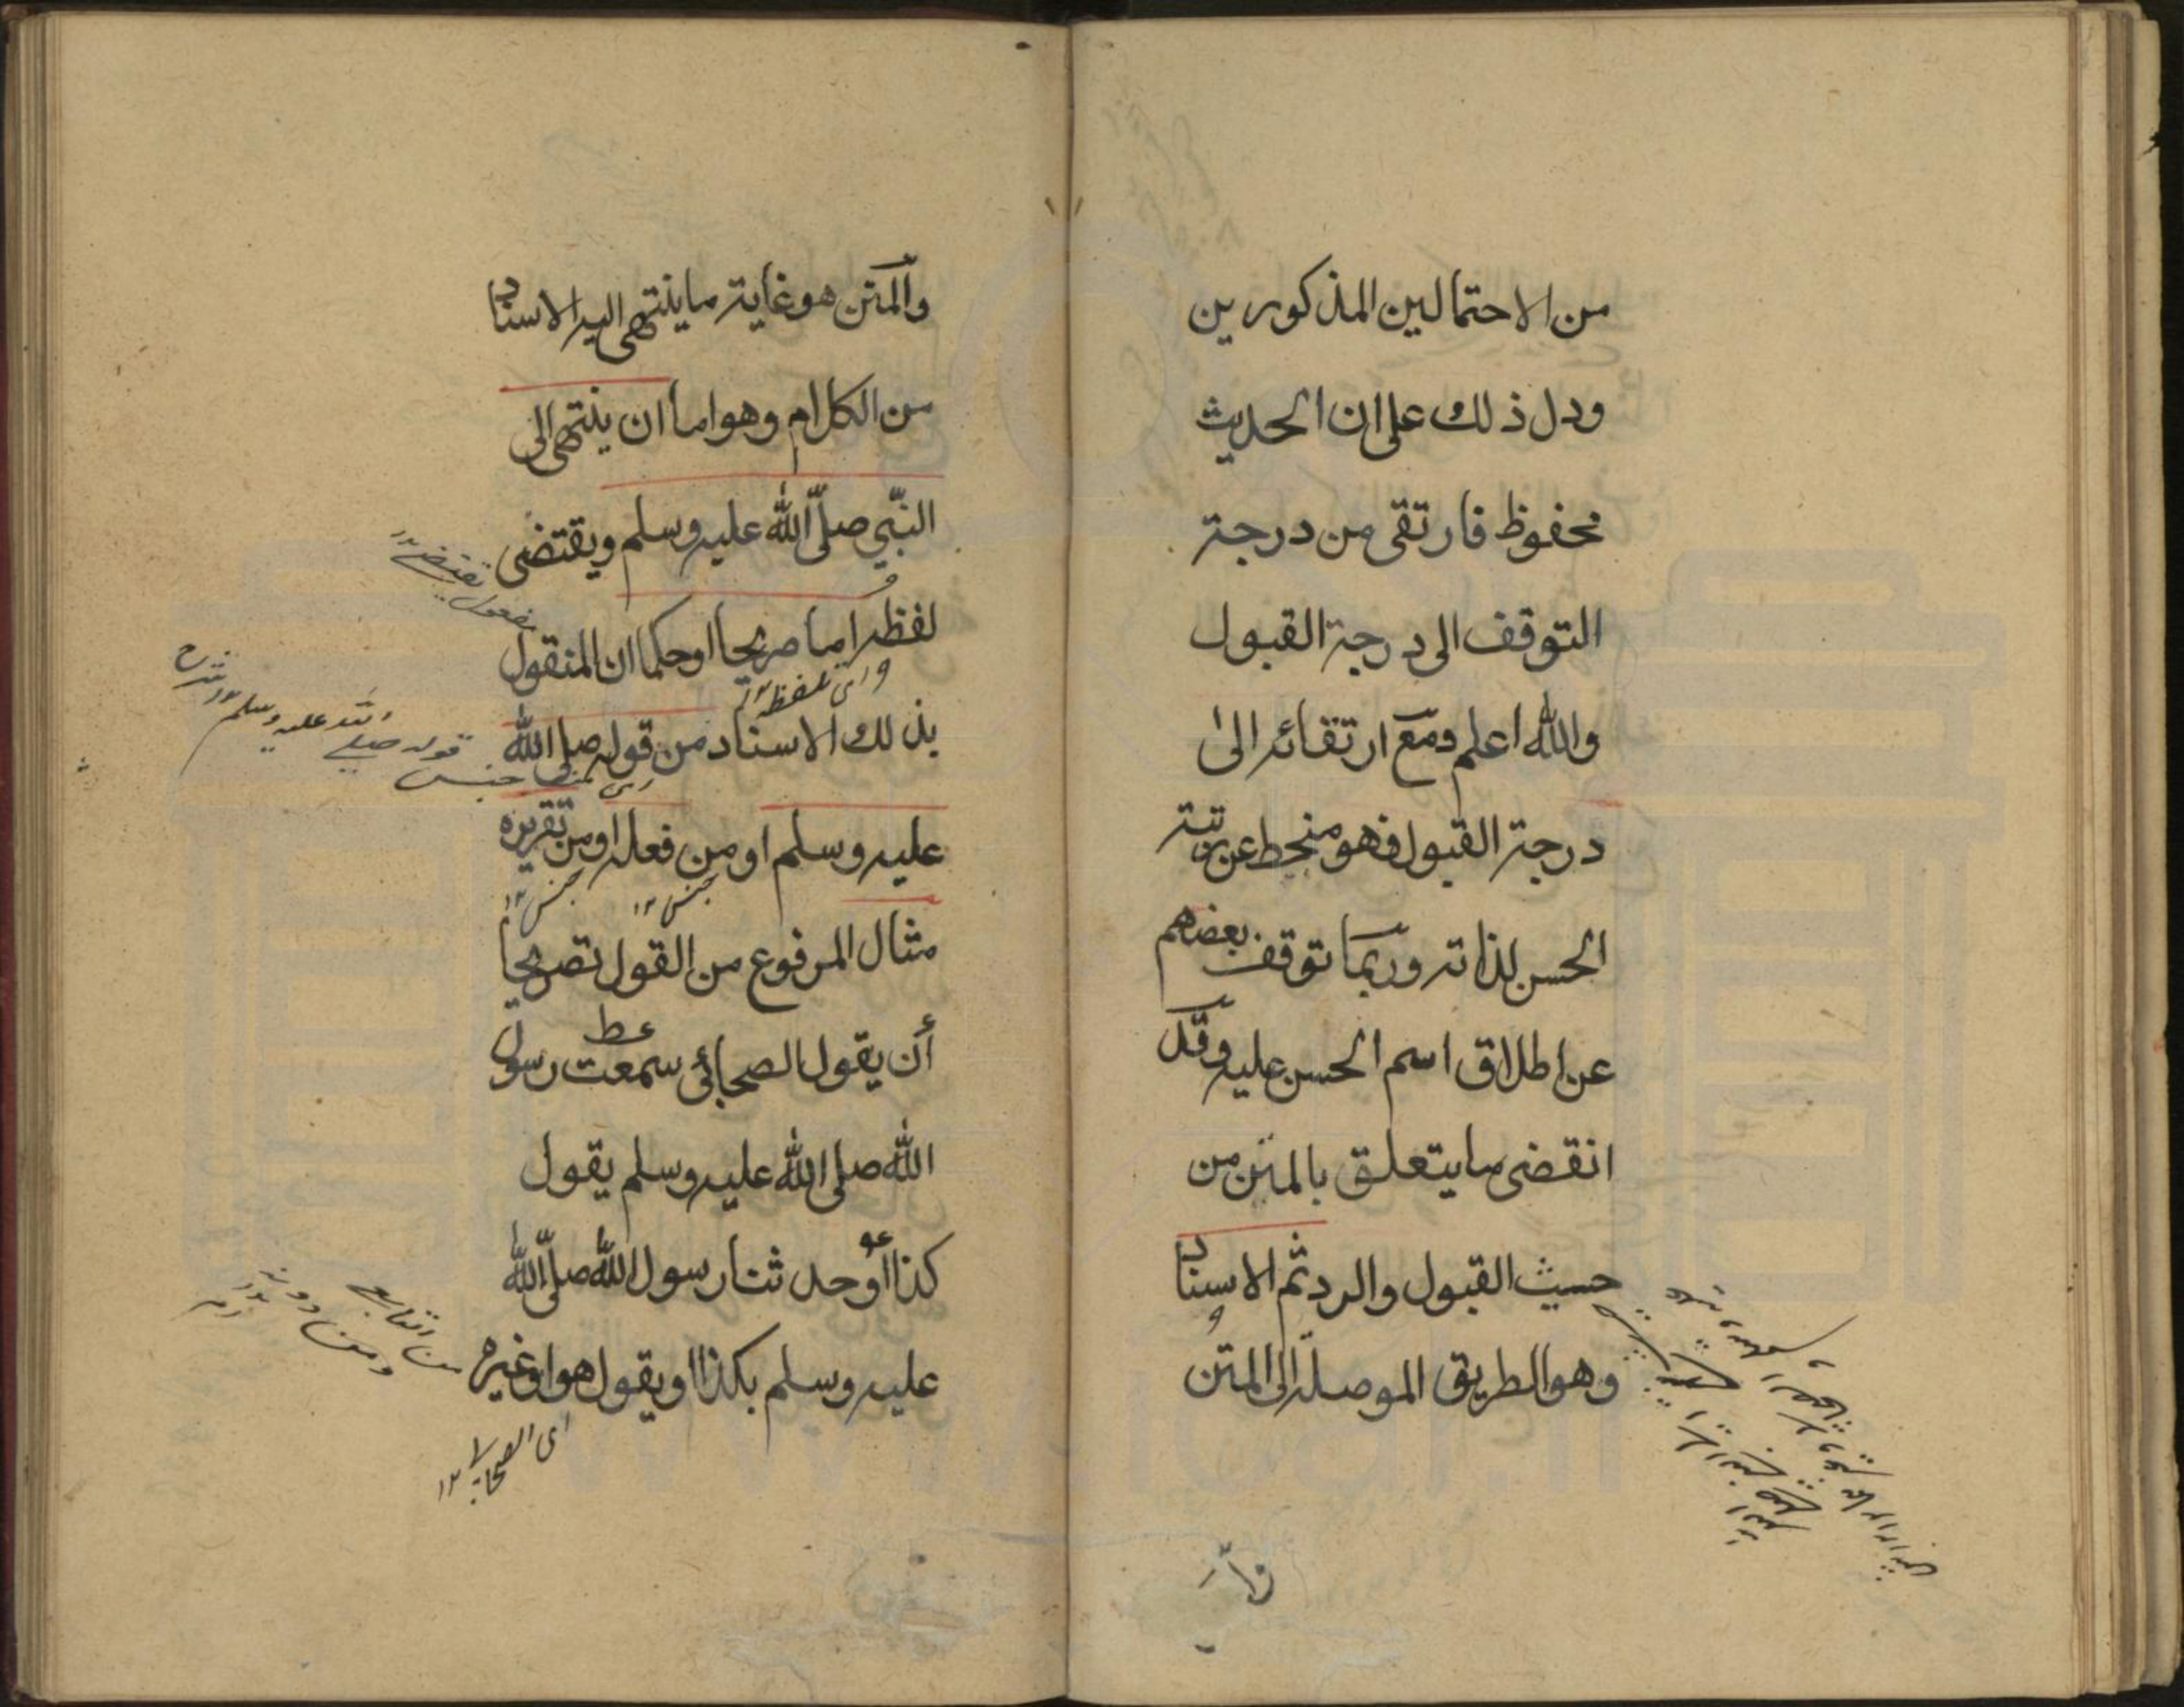 من الاحتمالين المذكورين
ودل ذلك على ان الحديث
محفوظ فارتقى من درجة
التوقف الى درجة القبول
والله اعلم ومع ارتقائه الى
درجة القبول فهو منحط عن رتبة
الحسن لذاته وربما توقف بعضهم
عن اطلاق اسم الحسن عليه وقد
انقضى ما يتعلق بالمتن من
حيث القبول والرد ثم الاسناد
وهو الطريق الموصلة الى المتن
والمتن هو غاية ما ينتهى اليه الاسناد
من الكلام وهو اما ان ينتهى الى
النبي صلى الله عليه وسلم ويقتضى
مفعول يقتضى ١٢
لفظه اما صريحا او حكما ان المنقول
اى تلفظه ١٢
بذلك الاسناد من قوله صلى الله
اى من جنس قوله صلى الله عليه وسلم ١٢ شرح
عليه وسلم او من فعله او من تقريره
جنس ١٢
جنس ١٢
مثال المرفوع من القول تصريحا
أن يقول الصحابي سمعت رسول
الله صلى الله عليه وسلم يقول
كذا أو حدثنا رسول الله صلى الله
عليه وسلم بكذا او يقول هو او غيره
من التابعى ومن دونه ١٢
اى الصحابى ١٢